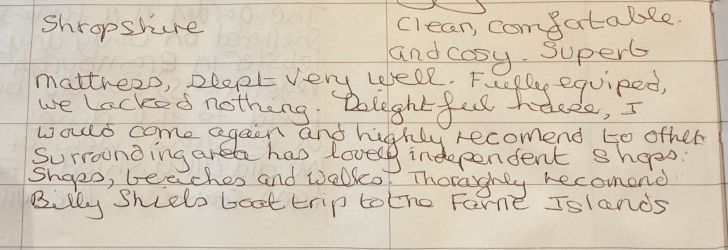 Shropshire
Clean, comfortable.
and cosy. Superb
mattress, slept very well. Fully equiped,
we lacked nothing. Delightful house, I
would come again and highly recomend to other
Surrounding area has lovely independent shops.
Shops, beaches and walks. Thoraghly recomend
Billy Shiels boat trip to the Farne Islands